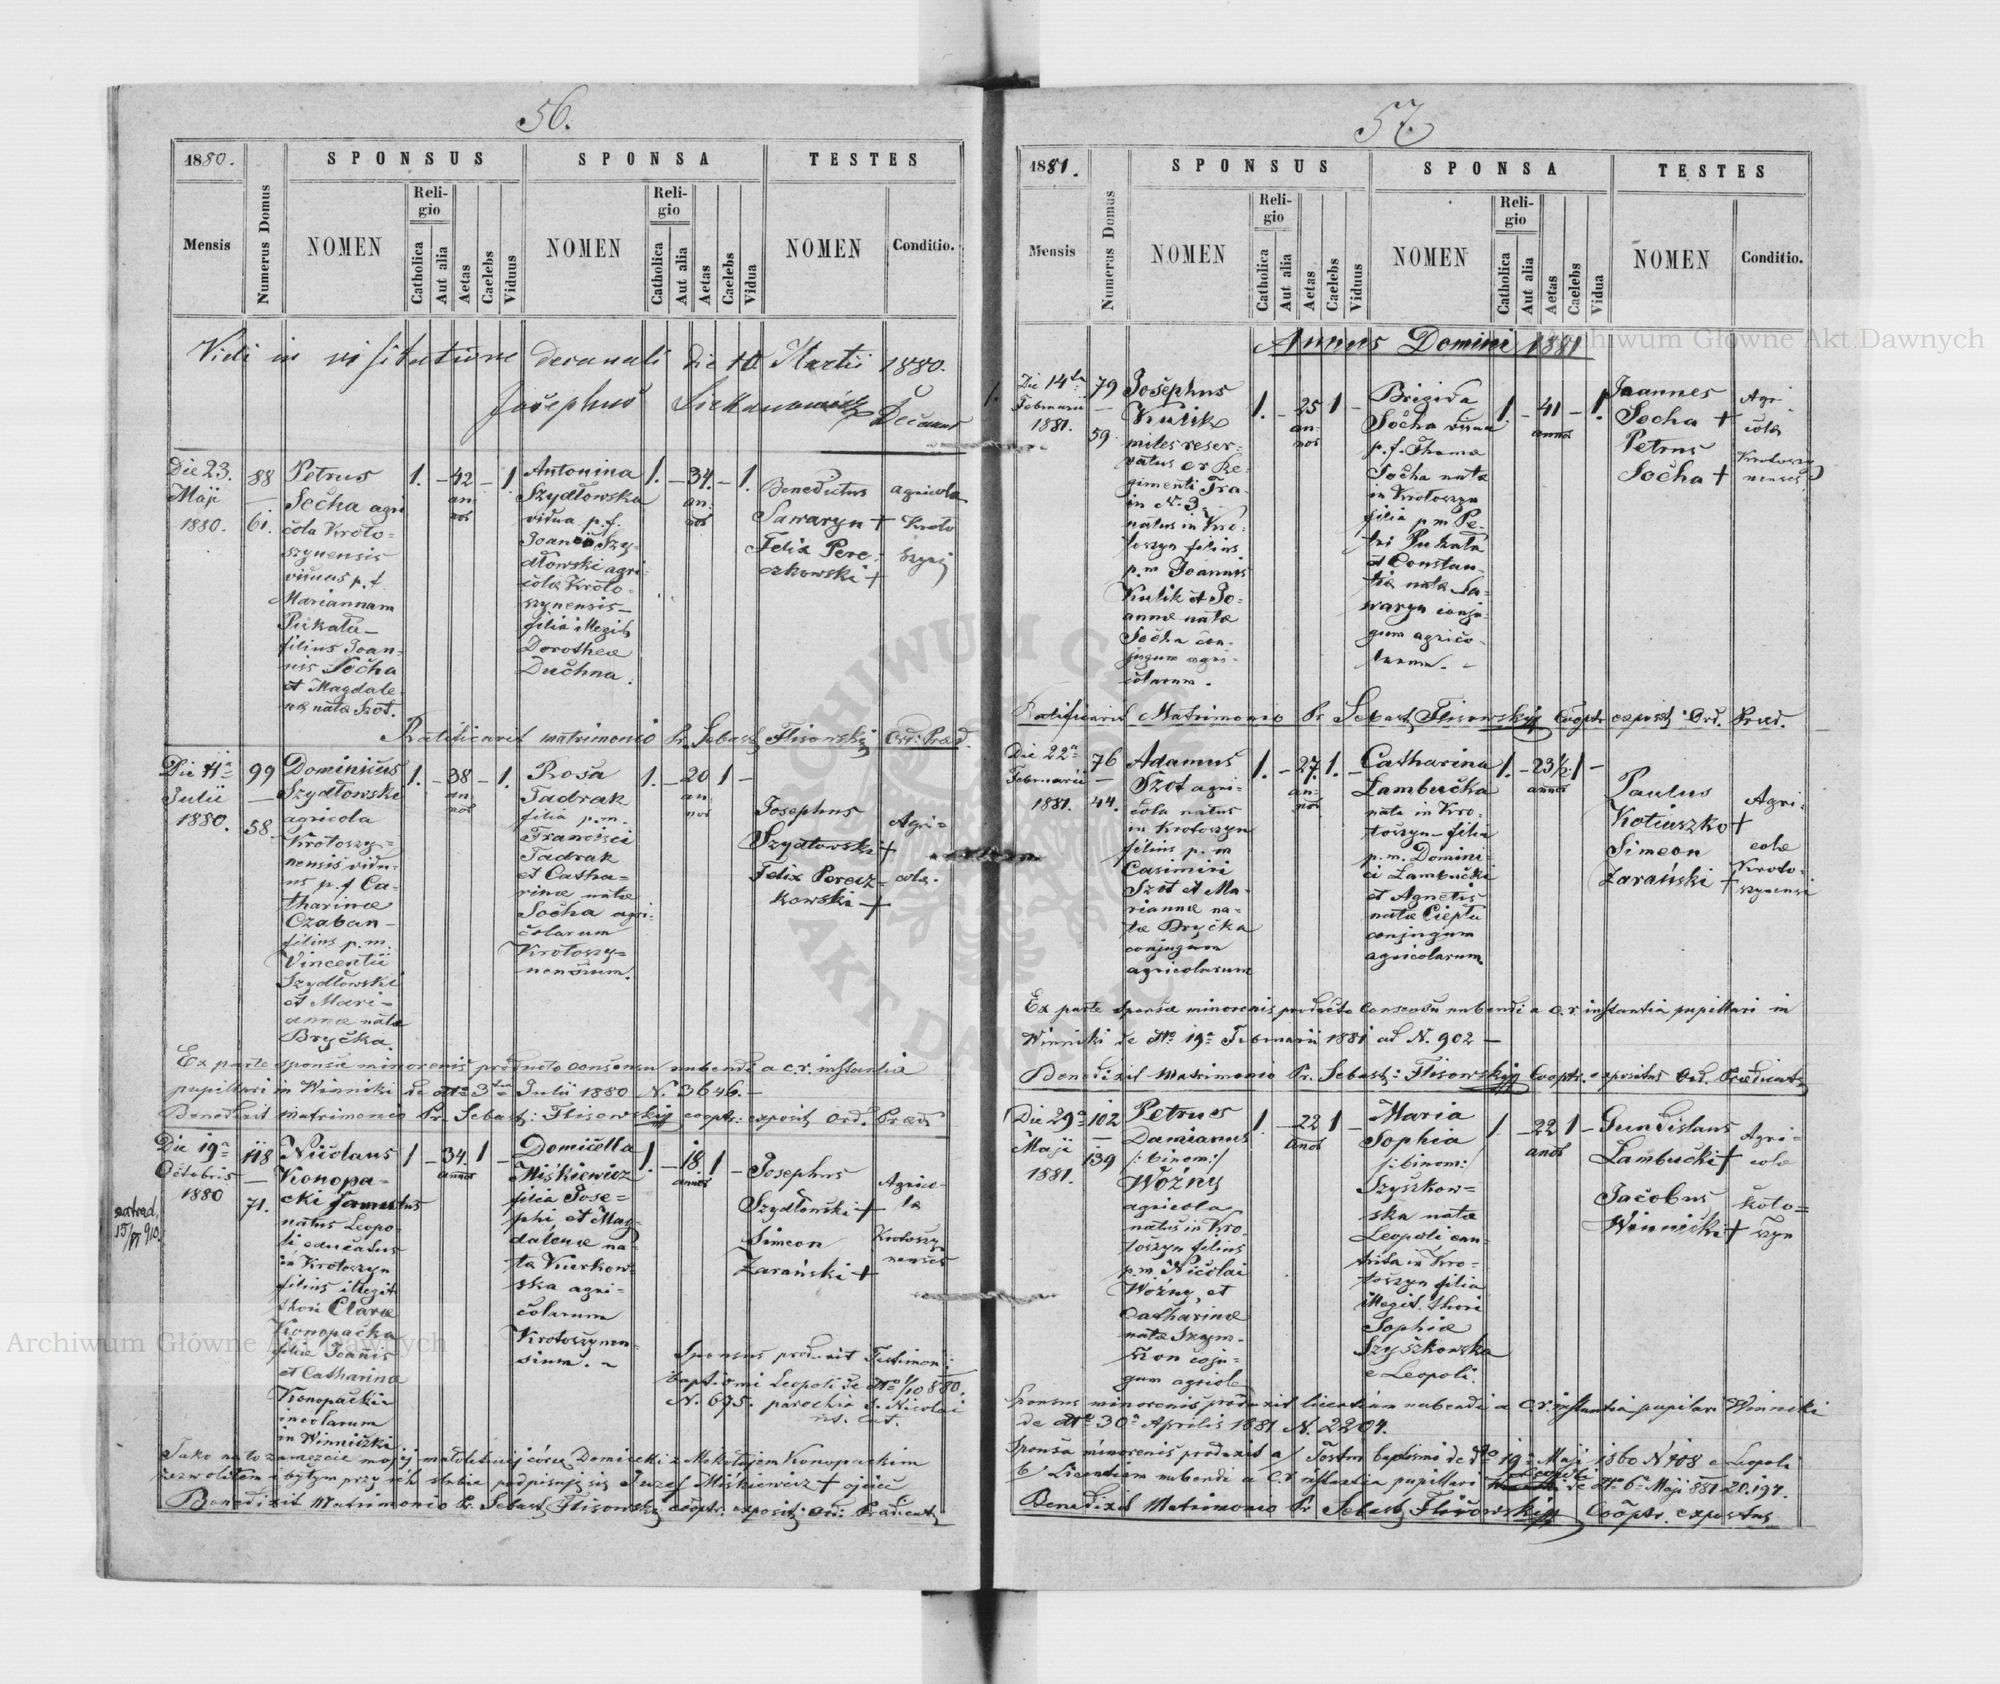 56.
1880.
Mensis
Numerus Domus
SPONSUS
NOMEN
Religio
Catholica
Aut alia
Aetas
Caelebs
Viduus
SPONSA
NOMEN
Religio
Catholica
Aut alia
Aetas
Caelebs
Vidua
TESTES
NOMEN
Conditio.
Vidi in visitatione decanali die 10 Martii 1880.
Josephus
Decanus
Die 23.
Maji
1880.
88
61.
Petrus
Socha agri
cola Kroto=
szynensis
viduus p. f.
Mariannam
Pukała
filius Joan=
nis Socha
et Magdale
na nata Szot.
1. – 42 – 1.
an-
nos
Antonina
Szydłowska
vidua p. f.
Joannis Szy-
dłowski agri-
cola Kroto-
szynensis
filia illegit.
Dorothea
Duchna.
1. – 34. – 1.
an-
nos
Benedictus
Sawaryn +
Felix Pere-
czkowski +
agricola
Kroto
szyn
Ratificavit matrimonio Pr. Sebast. Flisowski Ord: Præd.
Die 11a
Julii
1880.
99
58.
Dominicus
Szydłowski
agricola
Krotoszy=
nensis vidu-
us p. f. Ca-
tharinæ
Czaban–
filius p. m.
Vincentii
Szydłowski
et Mari-
annæ natæ
Bryčka.
1. – 38 – 1.
an-
nos
Rosa
Tadrak
filia p. m.
Francisci
Tadrak
et Catha-
rinæ natæ
Socha agri-
colarum
Krotoszy=
nensium.
1. – 20 1 –
an-
nos
Josephus
Szydłowski +
Felix Perecz-
kowski +
Agri=
colæ.
Ex parte sponsæ minorenis producto consensu nubendi a c. r. instantia
pupillari in Winniki de dto 3tia Julii 1880 N. 3646. –
Benedixit matrimonio Pr. Sebast: Flisowski cooptr: exposit Ord. Præd
Die 19a
Octobris
1880
118
71.
Nicolaus
Konopa-
cki famulus
natus Leopo
li educatus
in Krotoszyn
filius illegit
thori Claræ
Konopacka
filiæ Joanis
et Catharina
Konopacki
incolarum
in Winniczki
1 – 34. 1 –
annos
Domicella
Miśkiewicz
filia Jose=
phi et Mag
dalenæ na-
ta Kuerkow-
ska agri-
colarum
Krotoszynen-
sium. –
1. – 18. 1 –
annos
Josephus
Szydłowski +
Simeon
Zarański +
Agrico-
la
Krotoszy
nenses
extrad.
15/VI 910.
Sponsus produxit Testimon:
baptismi Leopoli de dto 1/10 880.
N. 675. parochia S. Nicolai
rit. lat.
Jako na to zamęzcie mojej małoletniej córce Domicelli z Mikołajem Konopackim
zezwoliłem i byłym przy ich ślubie podpisuję się Józef Miśkiewicz + ojciec
Benedixit Matrimonio Pr. Sebast Flisowski cooptr. exposit: Ord: Prædicat.
57
1881.
Mensis
Numerus Domus
SPONSUS
NOMEN
Religio
Catholica
Aut alia
Aetas
Caelebs
Viduus
SPONSA
NOMEN
Religio
Catholica
Aut alia
Aetas
Caelebs
Vidua
TESTES
NOMEN
Conditio.
Annus Domini 1881
1.
Die 14ta
Februarii
1881.
79
59.
Josephus
Kulik
miles reser-
vatus ex Re-
gimenti Tra-
in N. 3
natus in Kro-
toszyn filius
p. m. Joannis
Kulik et Jo-
annæ natæ
Socha con-
jugum agri-
colarum.
1. – 25 1 –
an-
nos
Brigida
Socha vidua
p. f. Thomæ
Socha nata
in Krotoszyn
filia p m Pe-
tri Pukała
et Constan-
tiæ natæ Sa-
waryn conju-
gum agrico-
larum. –
1. – 41 – 1.
annos
Joannes
Socha +
Petrus
Socha +
Agri
colæ
Krotoszy
nenses
Ratificavit Matrimonio Pr Sebast Flisowski Cooptr exposit Ord. Præd.
Die 22a
Februarii
1881.
76
44.
Adamus
Szot agri-
cola natus
in Krotoszyn
filius p. m
Casimiri
Szot et Ma-
riannæ na-
tæ Bryčka
conjugum
agricolarum
1. – 27. 1. –
an-
nos
Catharina
Łambucka
nata in Kro-
toszyn filia
p. m. Domini-
ci Łambucki
et Agnetis
natæ Ciepła
conjugum
agricolarum
1. – 23½ 1 –
annos
Paulus
Kotiuszko +
Simeon
Zarański +
Agri-
colæ
Kroto-
szynensi
Ex parte sponsæ minorenis producto consensu nubendi a c. r. instantia pupillari in
Winniki de dto 19a Februarii 1881 ad N. 902 –
Benedixit Matrimonio Pr. Sebast: Flisowski Cooptr. expositus Ord. Prædicat
Die 29a
Maji
1881.
102
139
Petrus
Damianus
/:binom:/
Woźny
agricola
natus in Kro-
toszyn filius
p. m. Nicolai
Woźny, et
Catharinæ
natæ Szym-
kon coju-
gum agricolæ
1. – 22 1 –
anos
Maria
Sophia
/:binom:/
Szyszkow=
ska nata
Leopoli enu-
trita in Kro-
toszyn filia
illegit. thori
Sophiæ
Szyszkowska
e Leopoli.
1. – 22 1 –
anos
Gundislaus
Łambucki +
Jacobus
Winnicki +
Agri-
colæ
Koto=
szyn
Sponsus minorenis produxit licentiam nubendi a C. r. instantia pupilari Winniki
de dto 30a Aprilis 1881 N. 2204.
Sponsa minorenis produxit a/ Testm baptismi de dto 19a Maji 1860 N 408 e Leopoli
b/ Licentiam nubendi a C. r instantia pupillari Leopoli de dto 6a Maji 881 20.197.
Benedixit Matrimonio Pr Sebast Flisowski Cooptr. expositus
Archiwum Główne Akt Dawnych
Archiwum Główne Akt Dawnych
ARCHIWUM GŁÓWNE AKT DAWNYCH